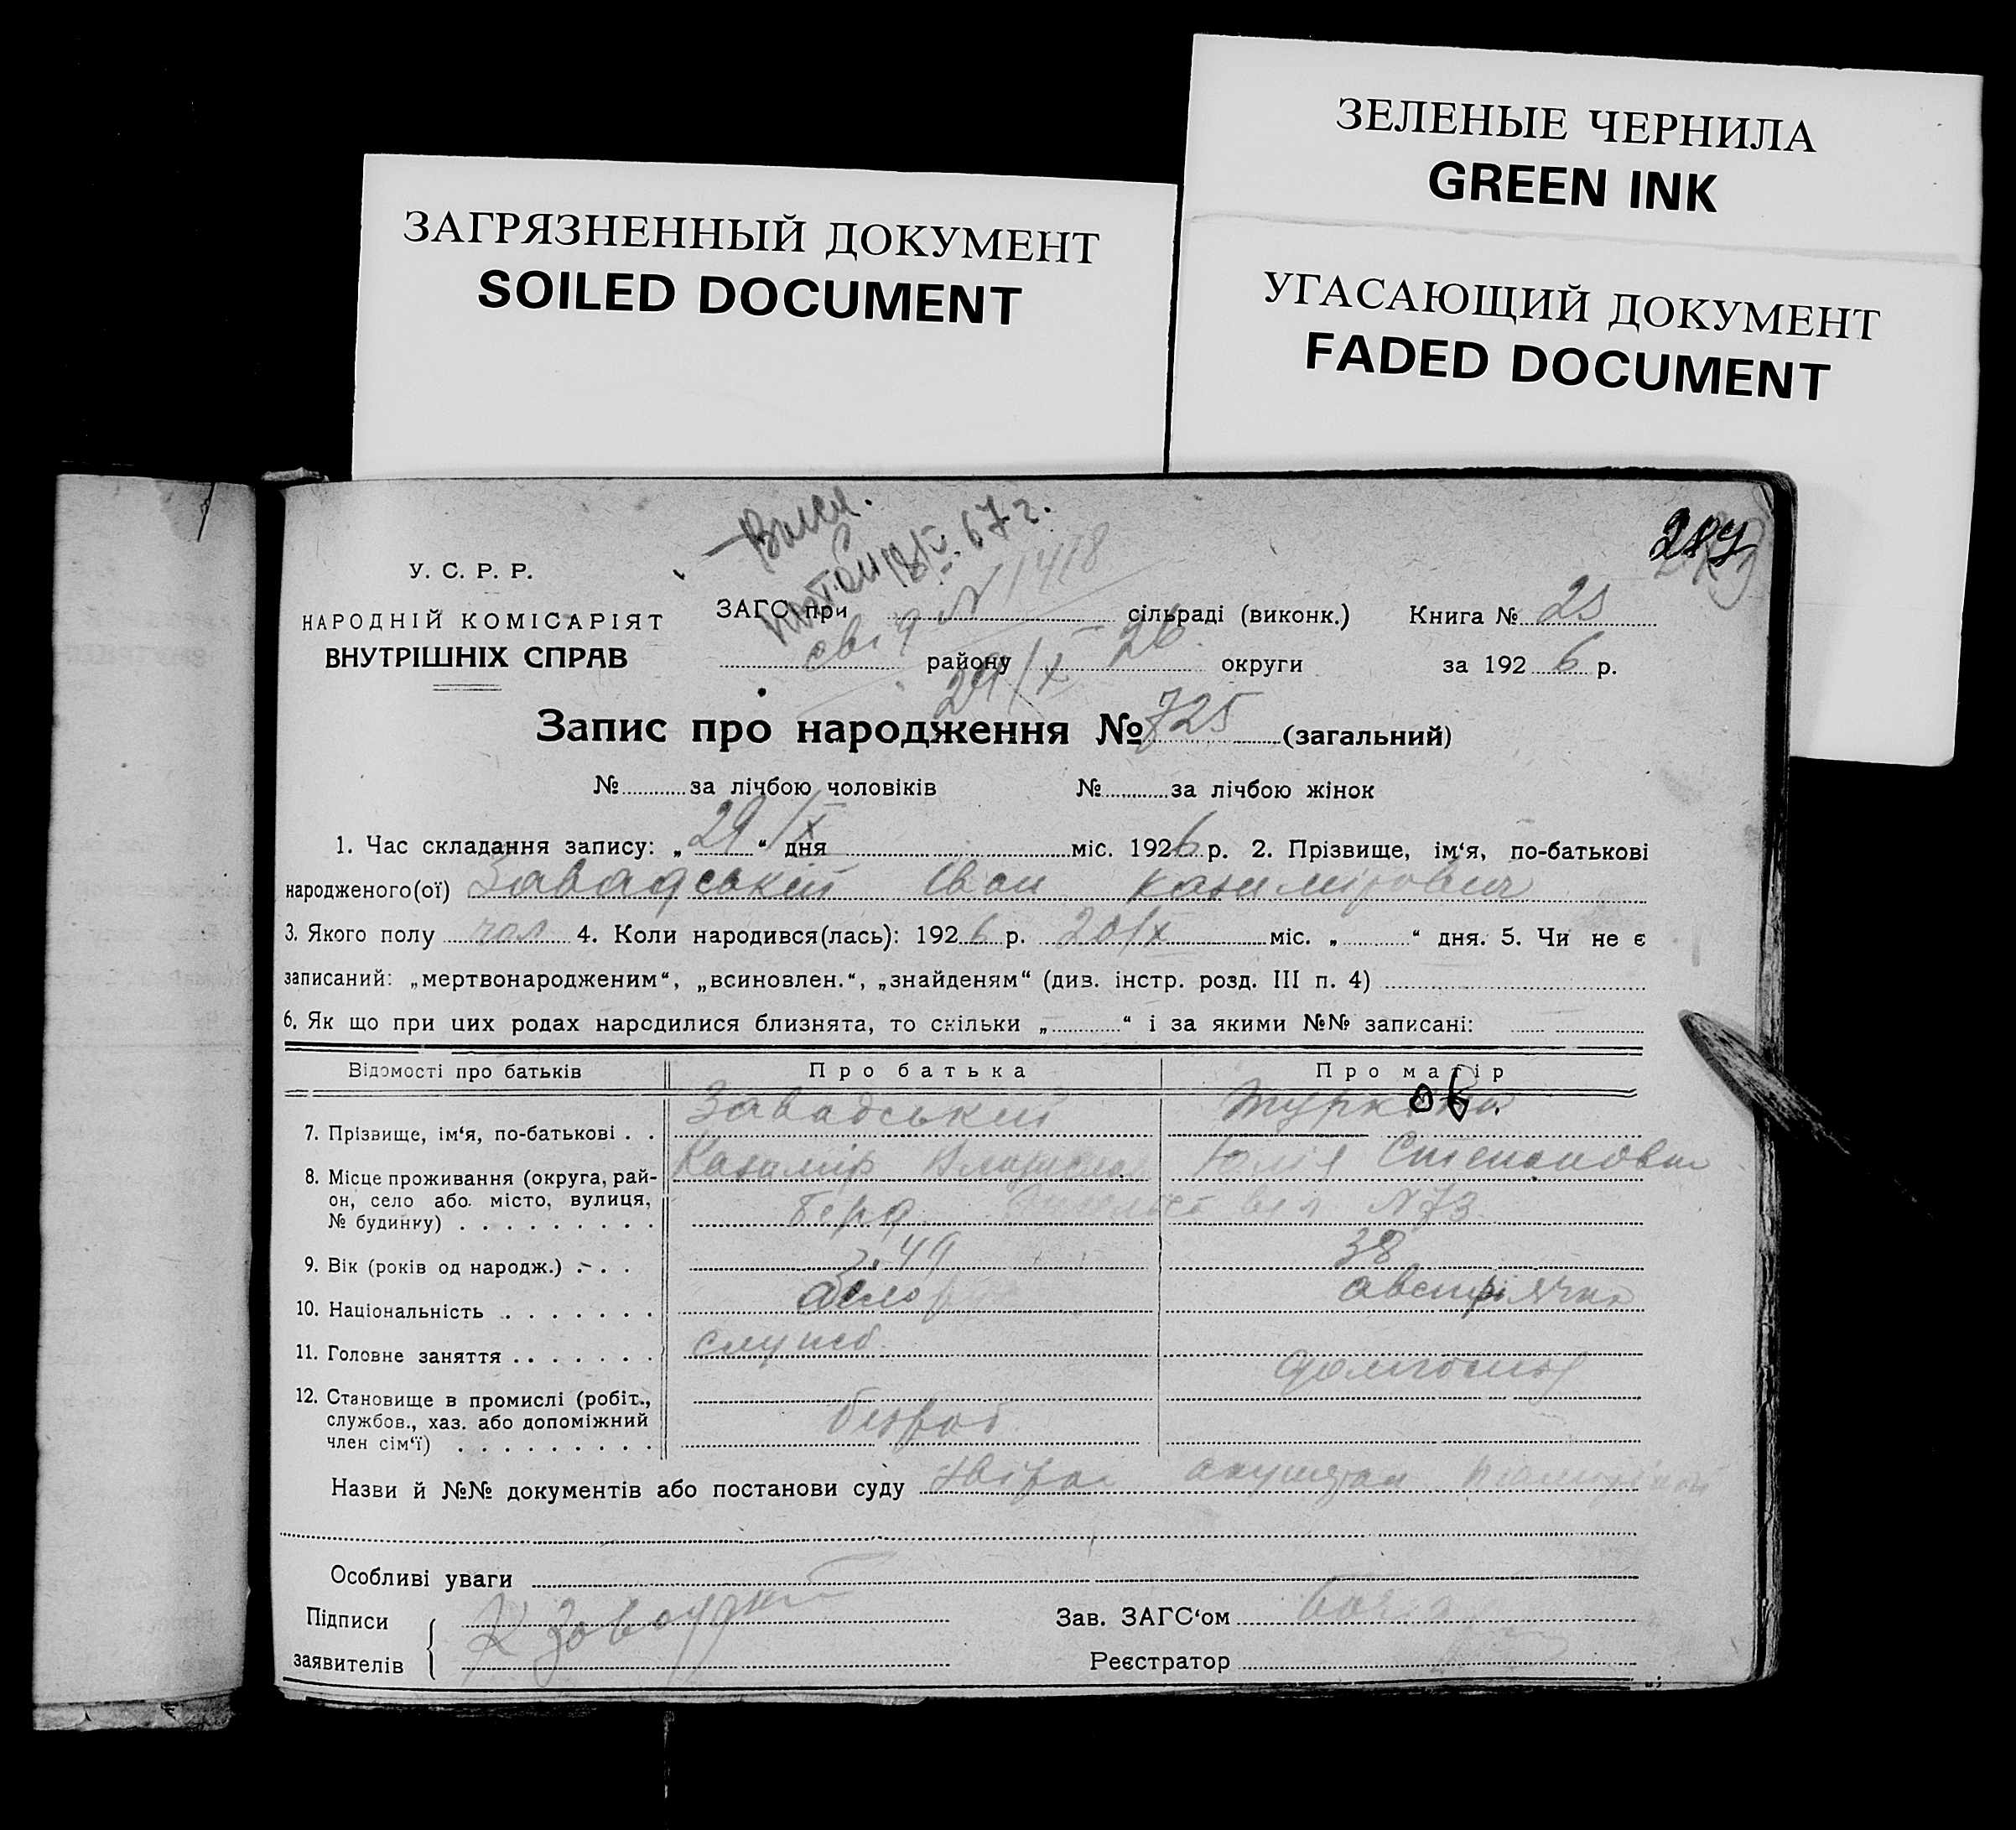 ЗЕЛЕНЫЕ ЧЕРНИЛА
GREEN INK
ЗАГРЯЗНЕННЫЙ ДОКУМЕНТ
SOILED DOCUMENT
УГАСАЮЩИЙ ДОКУМЕНТ
FADED DOCUMENT
У. С. Р. Р.
НАРОДНІЙ КОМІСАРІЯТ
ВНУТРІШНІХ СПРАВ
67 г.
ЗАГС при сільраді (виконк.) Книга № 25
району округи за 1926 р.
свід № 1418
29/X 26
Запис про народження № 725 (загальний)
№ за лічбою чоловіків № за лічбою жінок
1. Час складання запису: „29/X“ дня міс. 1926 р. 2. Прізвище, ім‘я, по-батькові
народженого(ої) Завадський Іван Казимірович
3. Якого полу чол 4. Коли народився(лась): 1926 р. 20/X міс. „ “ дня. 5. Чи не є
записаний: „мертвонародженим“, „всиновлен.“, „знайденям“ (див. інстр. розд. III п. 4)
6. Як що при цих родах народилися близнята, то скільки „ “ і за якими №№ записані:
Відомості про батьків Про батька Про матір
7. Прізвище, ім‘я, по-батькові . . Завадський
Казимір Юлія Степановна
8. Місце проживання (округа, рай-
он, село або місто, вулиця,
№ будинку) . . . . . . . . . Берд. вул N 73
9. Вік (років од народж.) . . . 49 38
10. Національність . . . . . . . австріячка
11. Головне заняття . . . . . . . служб. домгосп
12. Становище в промислі (робіт.,
службов., хаз. або допоміжний
член сім‘ї) . . . . . . . . . безроб
Назви й №№ документів або постанови суду довідка акушерки
Особливі уваги
Підписи К Завадский Зав. ЗАГС‘ом
заявителів Реєстратор